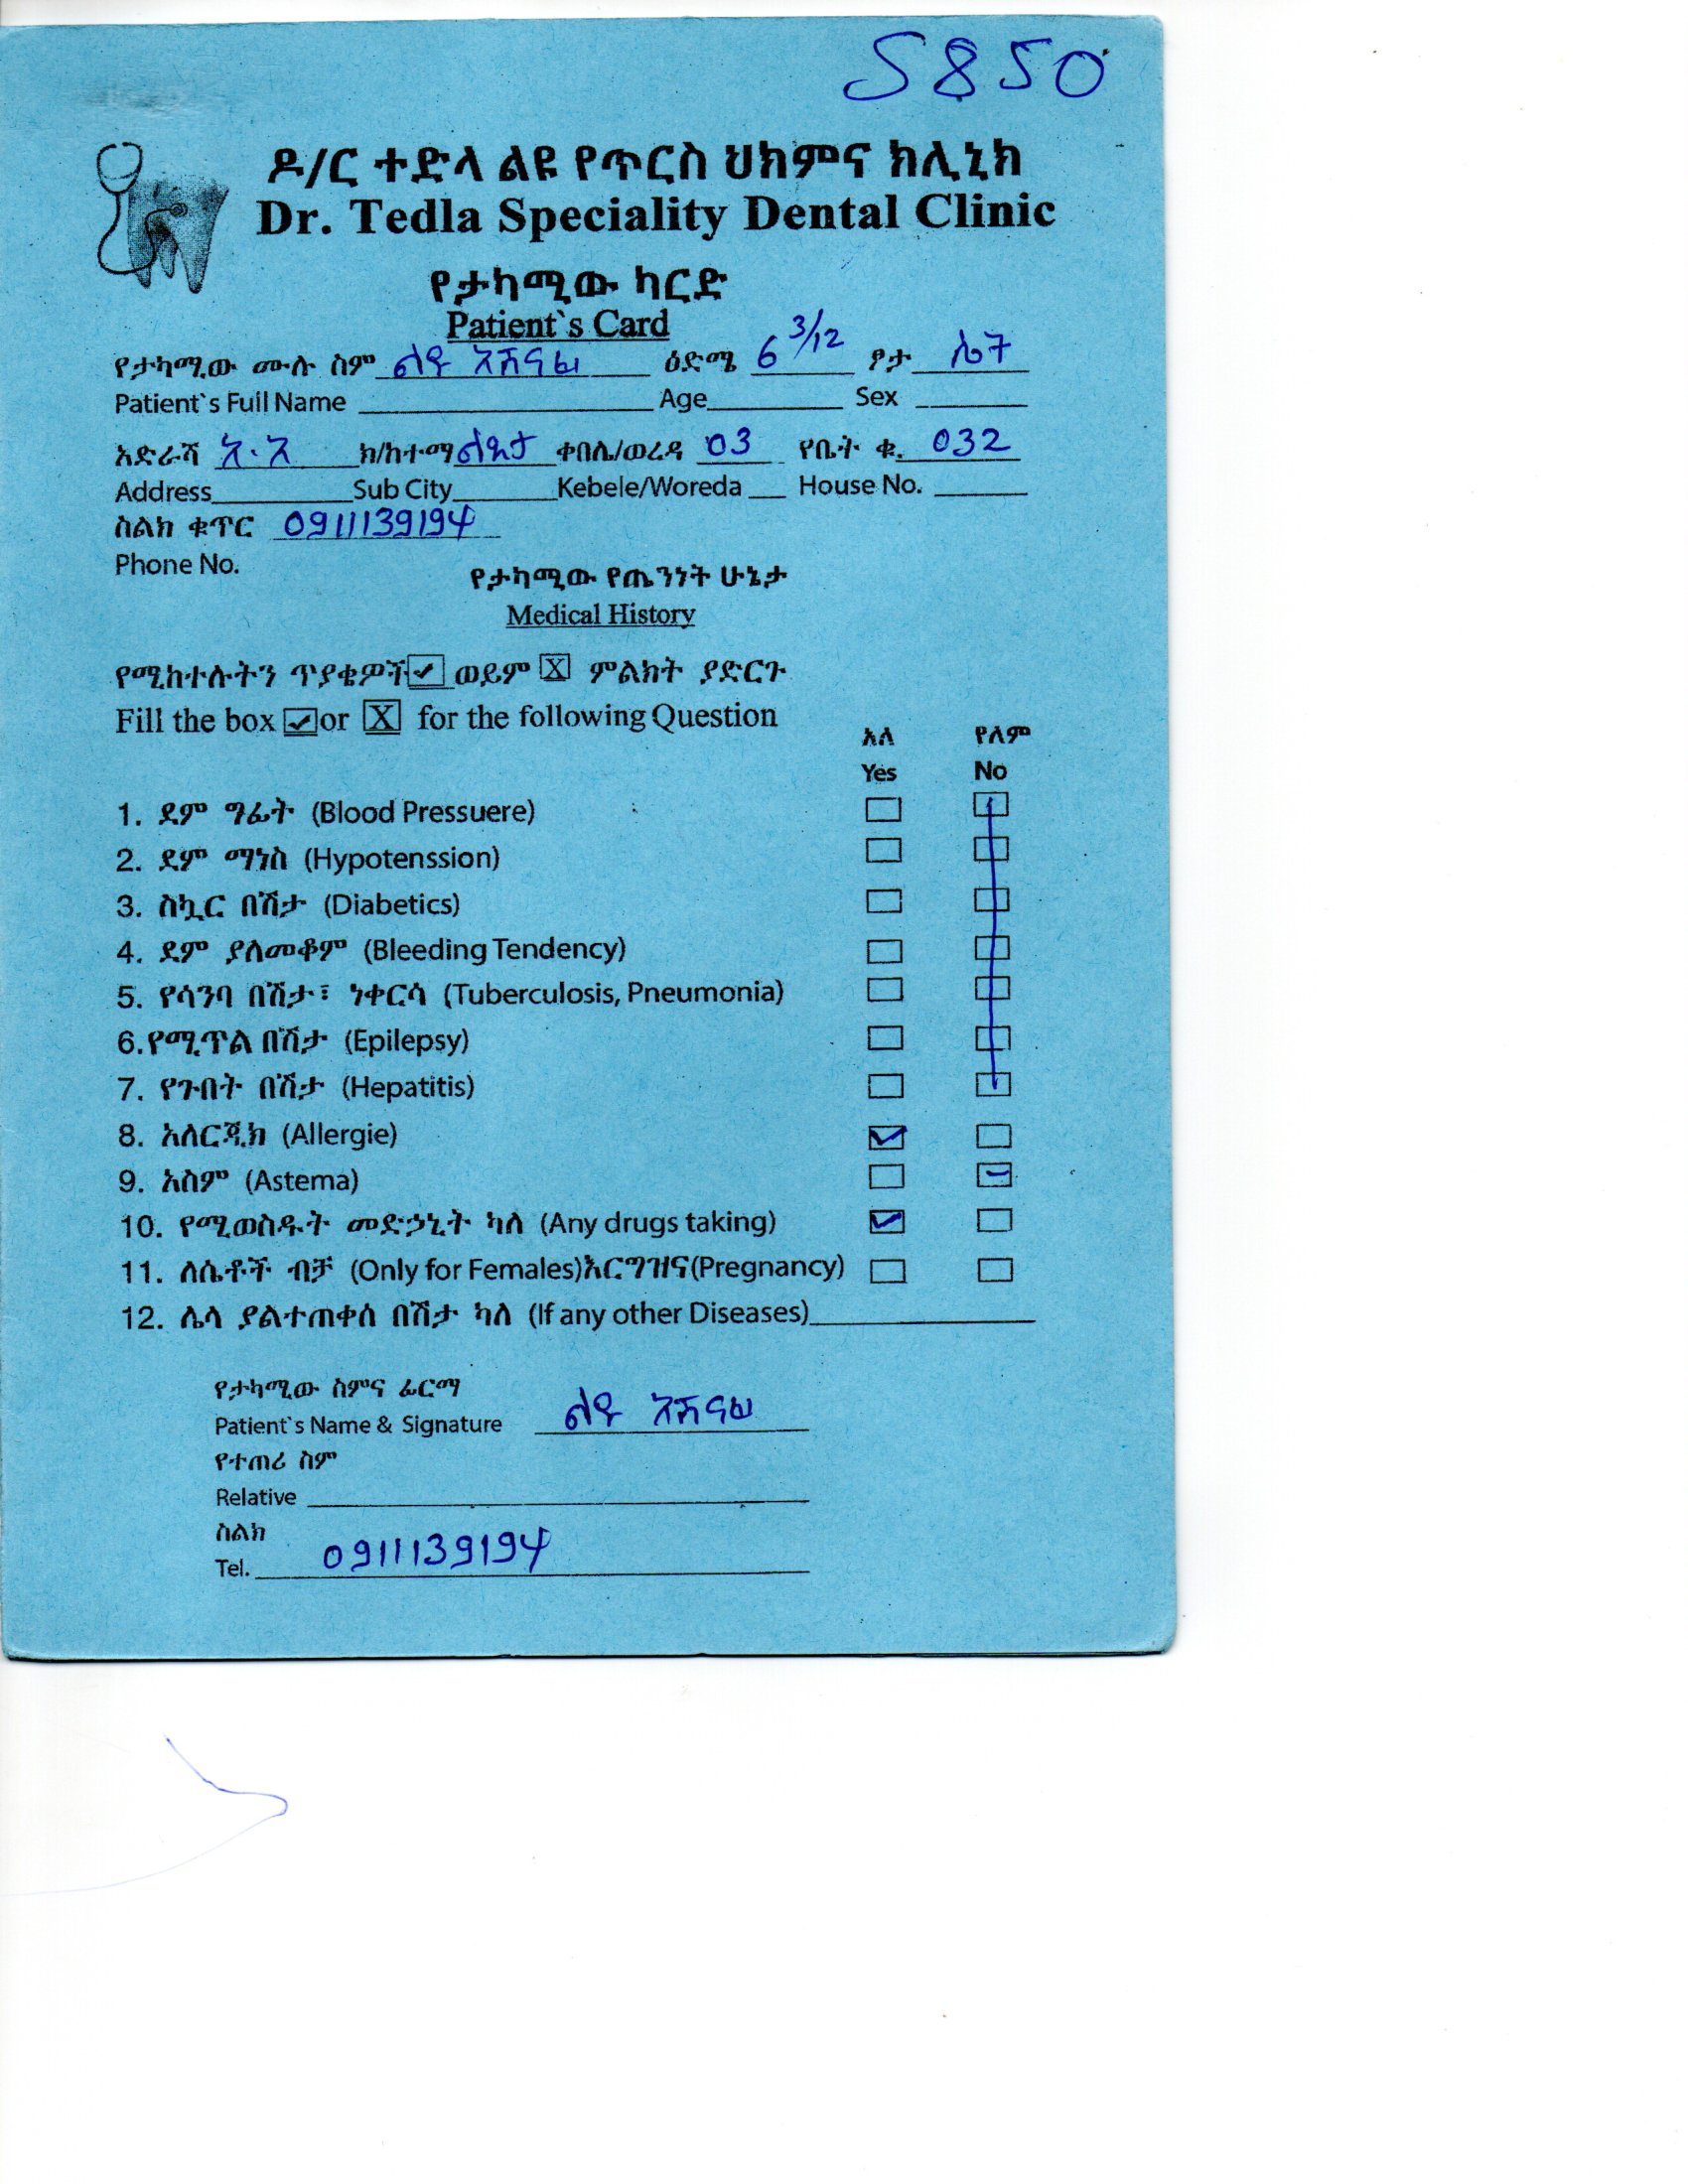 5850
ዶ/ር ተድላ ልዩ የጥርስ ህክምና ክሊኒክ
Dr. Tedla Speciality Dental Clinic
የታካሚው ካርድ
Patient`s Card
የታካሚው ሙሉ ስም ልዩ አሸናፊ ዕድሜ 6 3/12 ፆታ ሴት
Patient`s Full Name Age Sex
አድራሻ አ.አ ክ/ከተማ ልደታ ቀበሌ/ወረዳ 03 የቤት ቁ. 032
Address Sub City Kebele/Woreda House No.
ስልክ ቁጥር 0911139194
Phone No.
የታካሚው የጤንነት ሁኔታ
Medical History
የሚከተሉትን ጥያቄዎች ✓ ወይም X ምልክት ያድርጉ
Fill the box ✓ or X for the following Question
አለ የለም
Yes No
1. ደም ግፊት (Blood Pressuere)
2. ደም ማነስ (Hypotenssion)
3. ስኳር በሽታ (Diabetics)
4. ደም ያለመቆም (Bleeding Tendency)
5. የሳንባ በሽታ፣ ነቀርሳ (Tuberculosis, Pneumonia)
6.የሚጥል በሽታ (Epilepsy)
7. የጉበት በሽታ (Hepatitis)
8. አለርጂክ (Allergie) ✓
9. አስም (Astema) –
10. የሚወስዱት መድኃኒት ካለ (Any drugs taking) ✓
11. ለሴቶች ብቻ (Only for Females)እርግዝና(Pregnancy)
12. ሌላ ያልተጠቀሰ በሽታ ካለ (If any other Diseases)
የታካሚው ስምና ፊርማ
Patient`s Name & Signature ልዩ አሸናፊ
የተጠሪ ስም
Relative
ስልክ
Tel. 0911139194